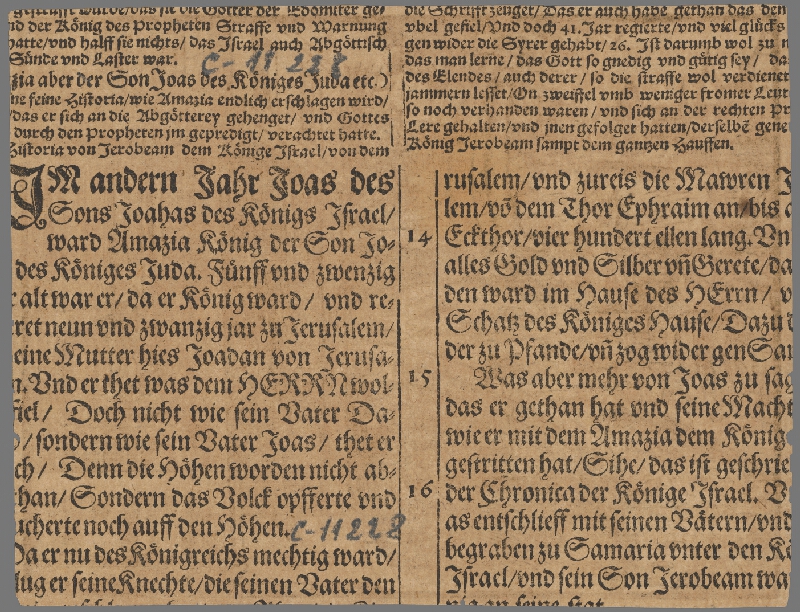 gestrafft wurde/das jn die Götter der Edomiter ge-
nd der König des Propheten Straffe vnd Warnung
hatte/vnd halff sie nichts/das Israel auch Abgöttisch
Sünde vnd Laster war.
C-11 228
zia aber der Son Joas des Königes Juda etc.)
ne seine Historia/wie Amazia endlich erschlagen wird/
/das er sich an die Abgötterey gehenget/ vnd Gottes
durch den Propheten jm gepredigt/ verachtet hatte.
Historia von Jerobeam dem Könige Israel/von dem
IM andern Jahr Joas des
Sons Joahas des Königs Israel/
ward Amazia König der Son Jo-
des Königes Juda. Fünff vnd zwenzig
r alt war er/ da er König ward/ vnd re-
ret neun vnd zwanzig jar zu Jerusalem/
eine Mutter hies Joadan von Jerusa-
m. Vnd er thet was dem HERRN wol-
fiel/ Doch nicht wie sein Vater Da-
/sondern wie sein Vater Joas/ thet er
ch/ Denn die Höhen worden nicht ab-
than/ Sondern das Volck opfferte vnd
ucherte noch auff den Höhen.
C-11228
Da er nu des Königreichs mechtig ward/
lug er seine Knechte/die seinen Vater den
die Schrifft zeuget/Das er auch habe gethan das dem
vbel gefiel/Vnd doch 41. Jar regierte/vnd viel glücks
gen wider die Syrer gehabt/26. Ist darumb wol zu m
das man lerne/das Gott so gnedig vnd gütig sey/ da
des Elendes/auch derer/so die straffe wol verdienet
jammern lesset/On zweiffel vmb weniger fromer Leut
so noch verhanden waren/vnd sich an der rechten Pr
Lere gehalten/vnd jnen gefolget hatten/derselbē gene
König Jerobeam sampt dem gantzen Hauffen.
rusalem/vnd zureis die Mawren J
lem/vō dem Thor Ephraim an/bis a
14 Eckthor/vier hundert ellen lang. Vn
alles Gold vnd Silber vn̄ Gerete/da
den ward im Hause des HErrn/ v
Schatz des Königes Hause/Dazu d
der zu Pfande/vn̄ zog wider gen Sam
15 Was aber mehr von Joas zu sag
das er gethan hat vnd seine Macht
wie er mit dem Amazia dem König
gestritten hat/Sihe/das ist geschrie
16 der Chronica der Könige Israel. V
as entschlieff mit seinen Vätern/vnd
begraben zu Samaria vnter den Kö
Israel/vnd sein Son Jerobeam wa
nig an seine stat.